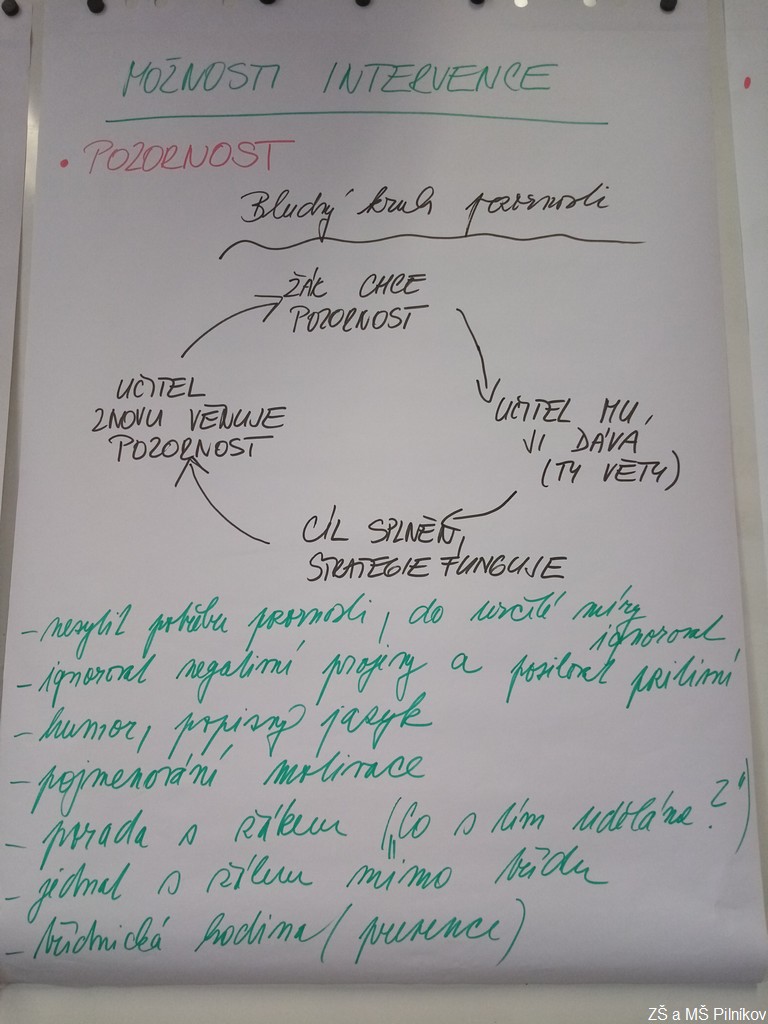 MOŽNOSTI INTERVENCE
• POZORNOST
Bludný kruh pozornosti
ŽÁK CHCE
POZORNOST
UČITEL MU,
JI DÁVÁ
(TY VĚTY)
CÍL SPLNĚN,
STRATEGIE FUNGUJE
UČITEL
ZNOVU VĚNUJE
POZORNOST
- nesytit potřebu pozornosti, do určité míry
ignorovat
- ignorovat negativní projevy a posilovat pozitivní
- humor, popisný jazyk
- pojmenování motivace
- porada s žákem („Co s tím uděláme?")
- jednat s žákem mimo třídu
- třídnická hodina (prevence)
ZŠ a MŠ Pilníkov